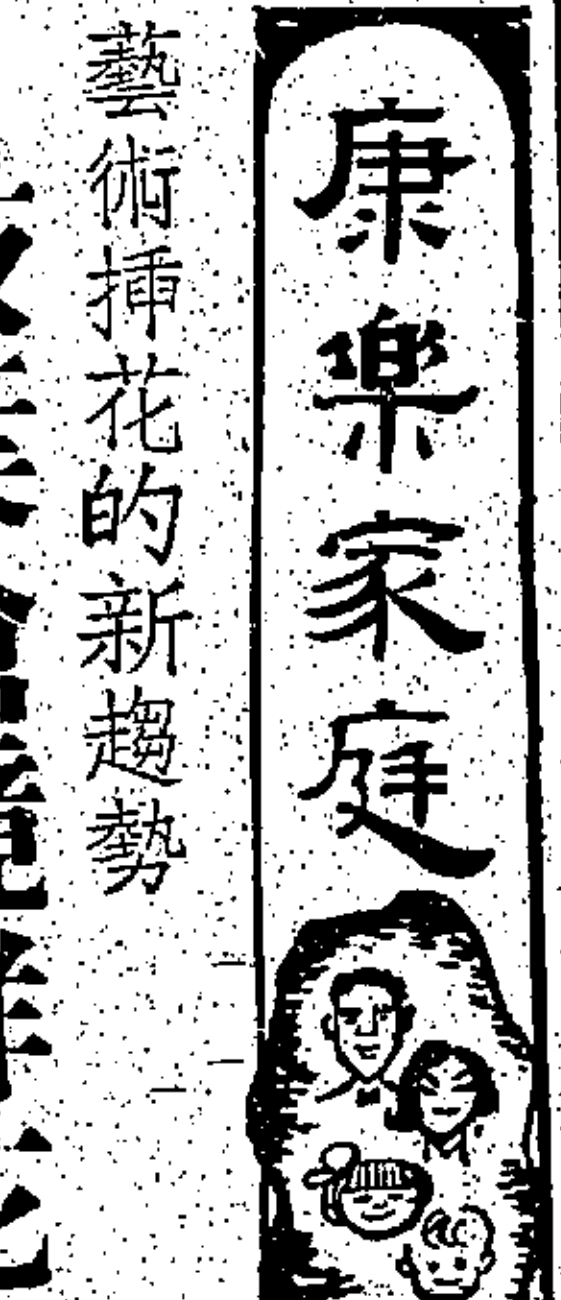 康樂家庭
藝術揷花的新趨勢